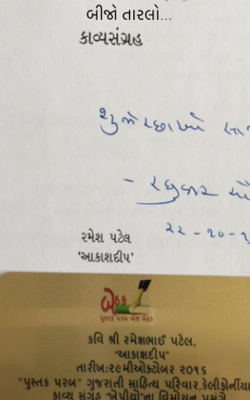 બીજો તારલો...
કાવ્યસંગ્રહ
શુભેચ્છાઓ
રમેશ પટેલ
'આકાશદીપ'
બેઠક
પુસ્તક પરબ
કવિ શ્રી રમેશભાઈ પટેલ,
"આકાશદીપ"
તારીખ:૨૯મીઓક્ટોબર ૨૦૧૬
"પુસ્તક પરબ" ગુજરાતી સાહિત્ય પરિવાર,કેલીફોર્નીયા
કાવ્ય સંગ્રહ
વિમોચન પ્રસંગે